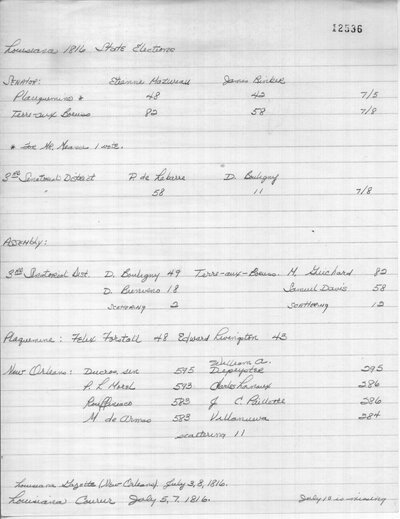 12536
Louisiana 1816 State Elections
Senator: Etienne Mazureau James Binker
Plaquemines * 48 42 7/5
Terre-aux Boeufs 82 58 7/8
* For Mr. 1 vote.
3rd Senatorial District P. de Labarre D. Bouligny
" 58 11 7/8
Assembly:
3rd Senatorial Dist. D. Bouligny 49 Terre-aux-Boeufs. M. Guichard 82
D. 18 Samuel Davis 58
scattering 2 scattering 12
Plaquemine: Felix Forstall 48 Edward Livingston 43
New Orleans: Ducros, sen 595 William A. Depeyster 295
P. L. Morel 593 Charles 286
Rouffignac 583 J. C. 286
M. de Armas 583 Villanueva 284
scattering 11
Louisiana Gazette (New Orleans). July 3, 8, 1816.
Louisiana Courier July 5, 7. 1816. July 10 is missing